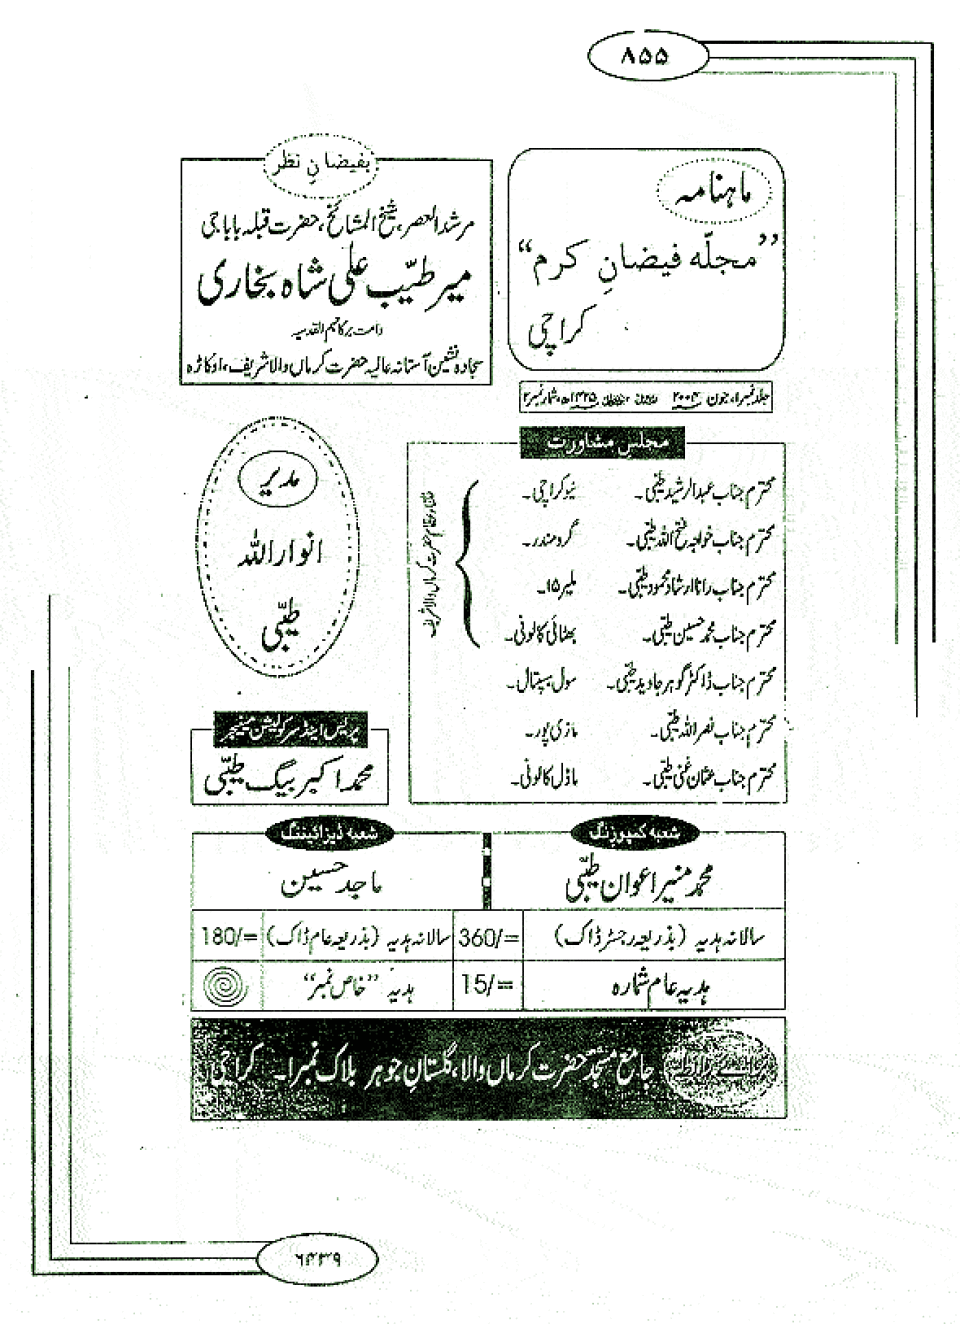 ۸۵۵
ماہنامہ
”مجلّہ فیضانِ کرم“
کراچی
جلد نمبر ۱، جون ۲۰۰۴ ۱۴۲۵ھ، شمار نمبر ۲
بفیضانِ نظر
مرشد العصر، شیخ المشائخ، حضرت قبلہ باباجی
میر طیّب علی شاہ بخاری
دامت برکاتہم القدسیہ
سجادہ نشین آستانہ عالیہ حضرت کرماں والا شریف، اوکاڑہ
مجلسِ مشاورت
محترم جناب عبدالرشید طیّبی۔ نیو کراچی۔
محترم جناب خواجہ فتح اللہ طیّبی۔ گرومندر۔
محترم جناب رانا ارشاد محمود طیّبی۔ ملیر ۱۵۔
محترم جناب محمد حسین طیّبی۔ بھٹائی کالونی۔
محترم جناب ڈاکٹر گوہر جاوید طیّبی۔ سول ہسپتال۔
محترم جناب نصر اللہ طیّبی۔ ماڑی پور۔
محترم جناب عثمان غنی طیّبی۔ ماڈل کالونی۔
خلفاء عظام حضرت کرماں والا شریف
مدیر
انوار اللہ
طیّبی
پریس اینڈ سرکولیشن مینیجر
محمد اکبر بیگ طیّبی
شعبہ کمپوزنگ
محمد منیر اعوان طیّبی
شعبہ ڈیزائیننگ
ماجد حسین
سالانہ ہدیہ (بذریعہ رجسٹر ڈاک) 360/= سالانہ ہدیہ (بذریعہ عام ڈاک) 180/=
ہدیہ عام شمارہ 15/= ہدیہ ”خاص نمبر“
جامع مسجد حضرت کرماں والا، گلستانِ جوہر بلاک نمبر ۱۔ کراچی
۶۴۳۹